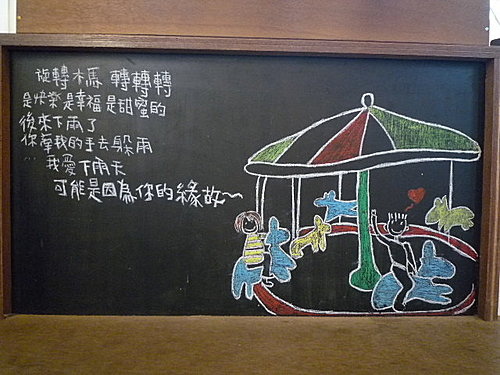 旋轉木馬 轉轉轉
是快樂是幸福是甜蜜的
後來下雨了
你牽我的手去躲雨
…我愛下雨天
可能是因為你的緣故~